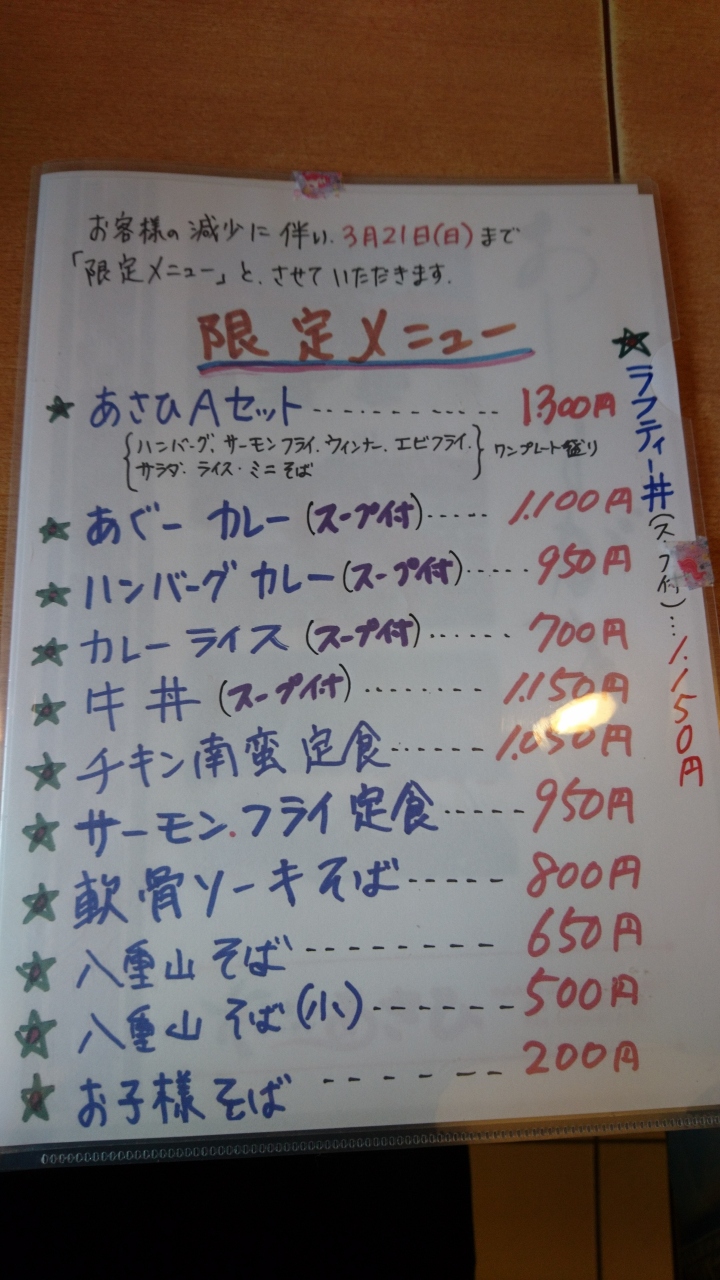 お客様の減少に伴い、3月21日(日)まで
「限定メニュー」と、させていただきます。
限定メニュー
★ あさひAセット ............ 1300円
{ハンバーグ、サーモンフライ、ウィンナー、エビフライ、
サラダ、ライス・ミニそば} ワンプレート盛り
★ あぐー カレー(スープ付)...... 1.100円
★ ハンバーグ カレー(スープ付)..... 950円
★ カレー ライス (スープ付)...... 700円
★ 牛丼 (スープ付)........ 1.150円
★ チキン南蛮定食...... 1.050円
★ サーモン.フライ定食..... 950円
★ 軟骨ソーキそば..... 800円
★ 八重山そば --------- 650円
★ 八重山そば(小)------ 500円
★ お子様そば ------ 200円
★ ラフティー丼(スープ付)... 1.150円